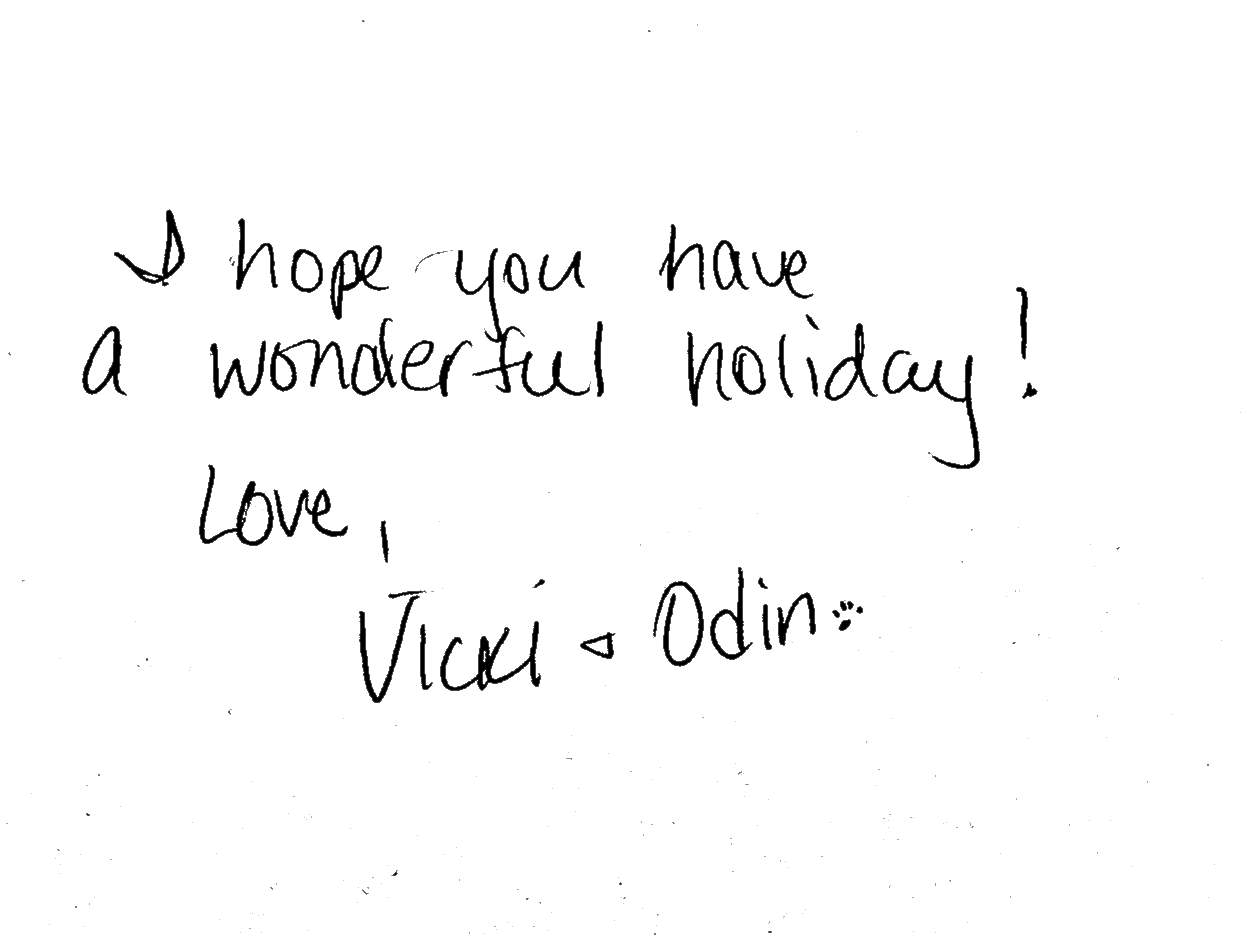 I hope you have
a wonderful holiday!
Love,
Vicki & Odin